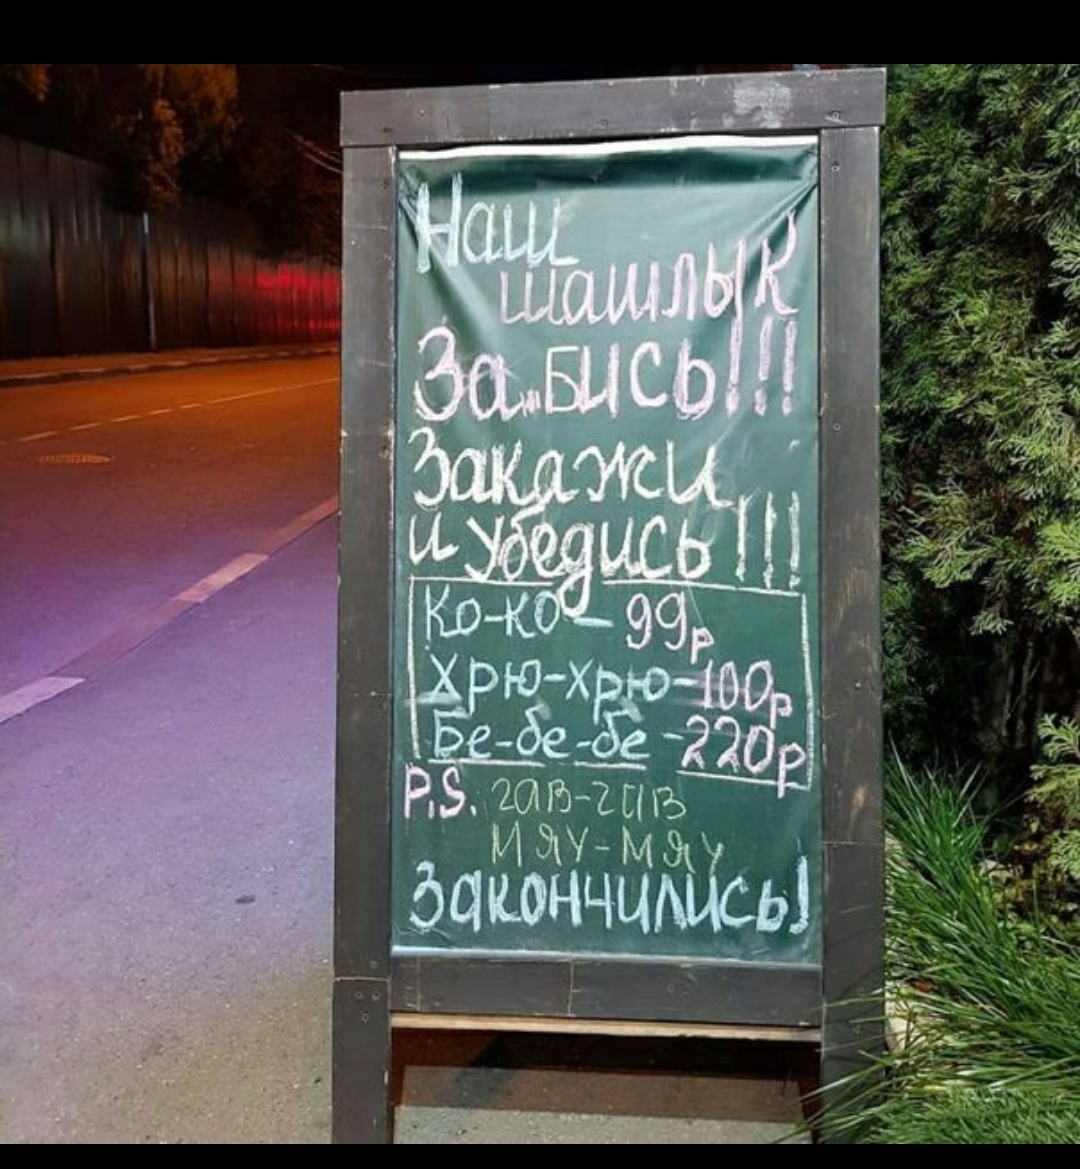 Наш
шашлык
За...бись!!!
Закажи
и убедись!!!
Ко-ко - 99р
Хрю-хрю-100р
Бе-бе-бе -220р
P.S. гав-гав
мяу-мяу
Закончились!